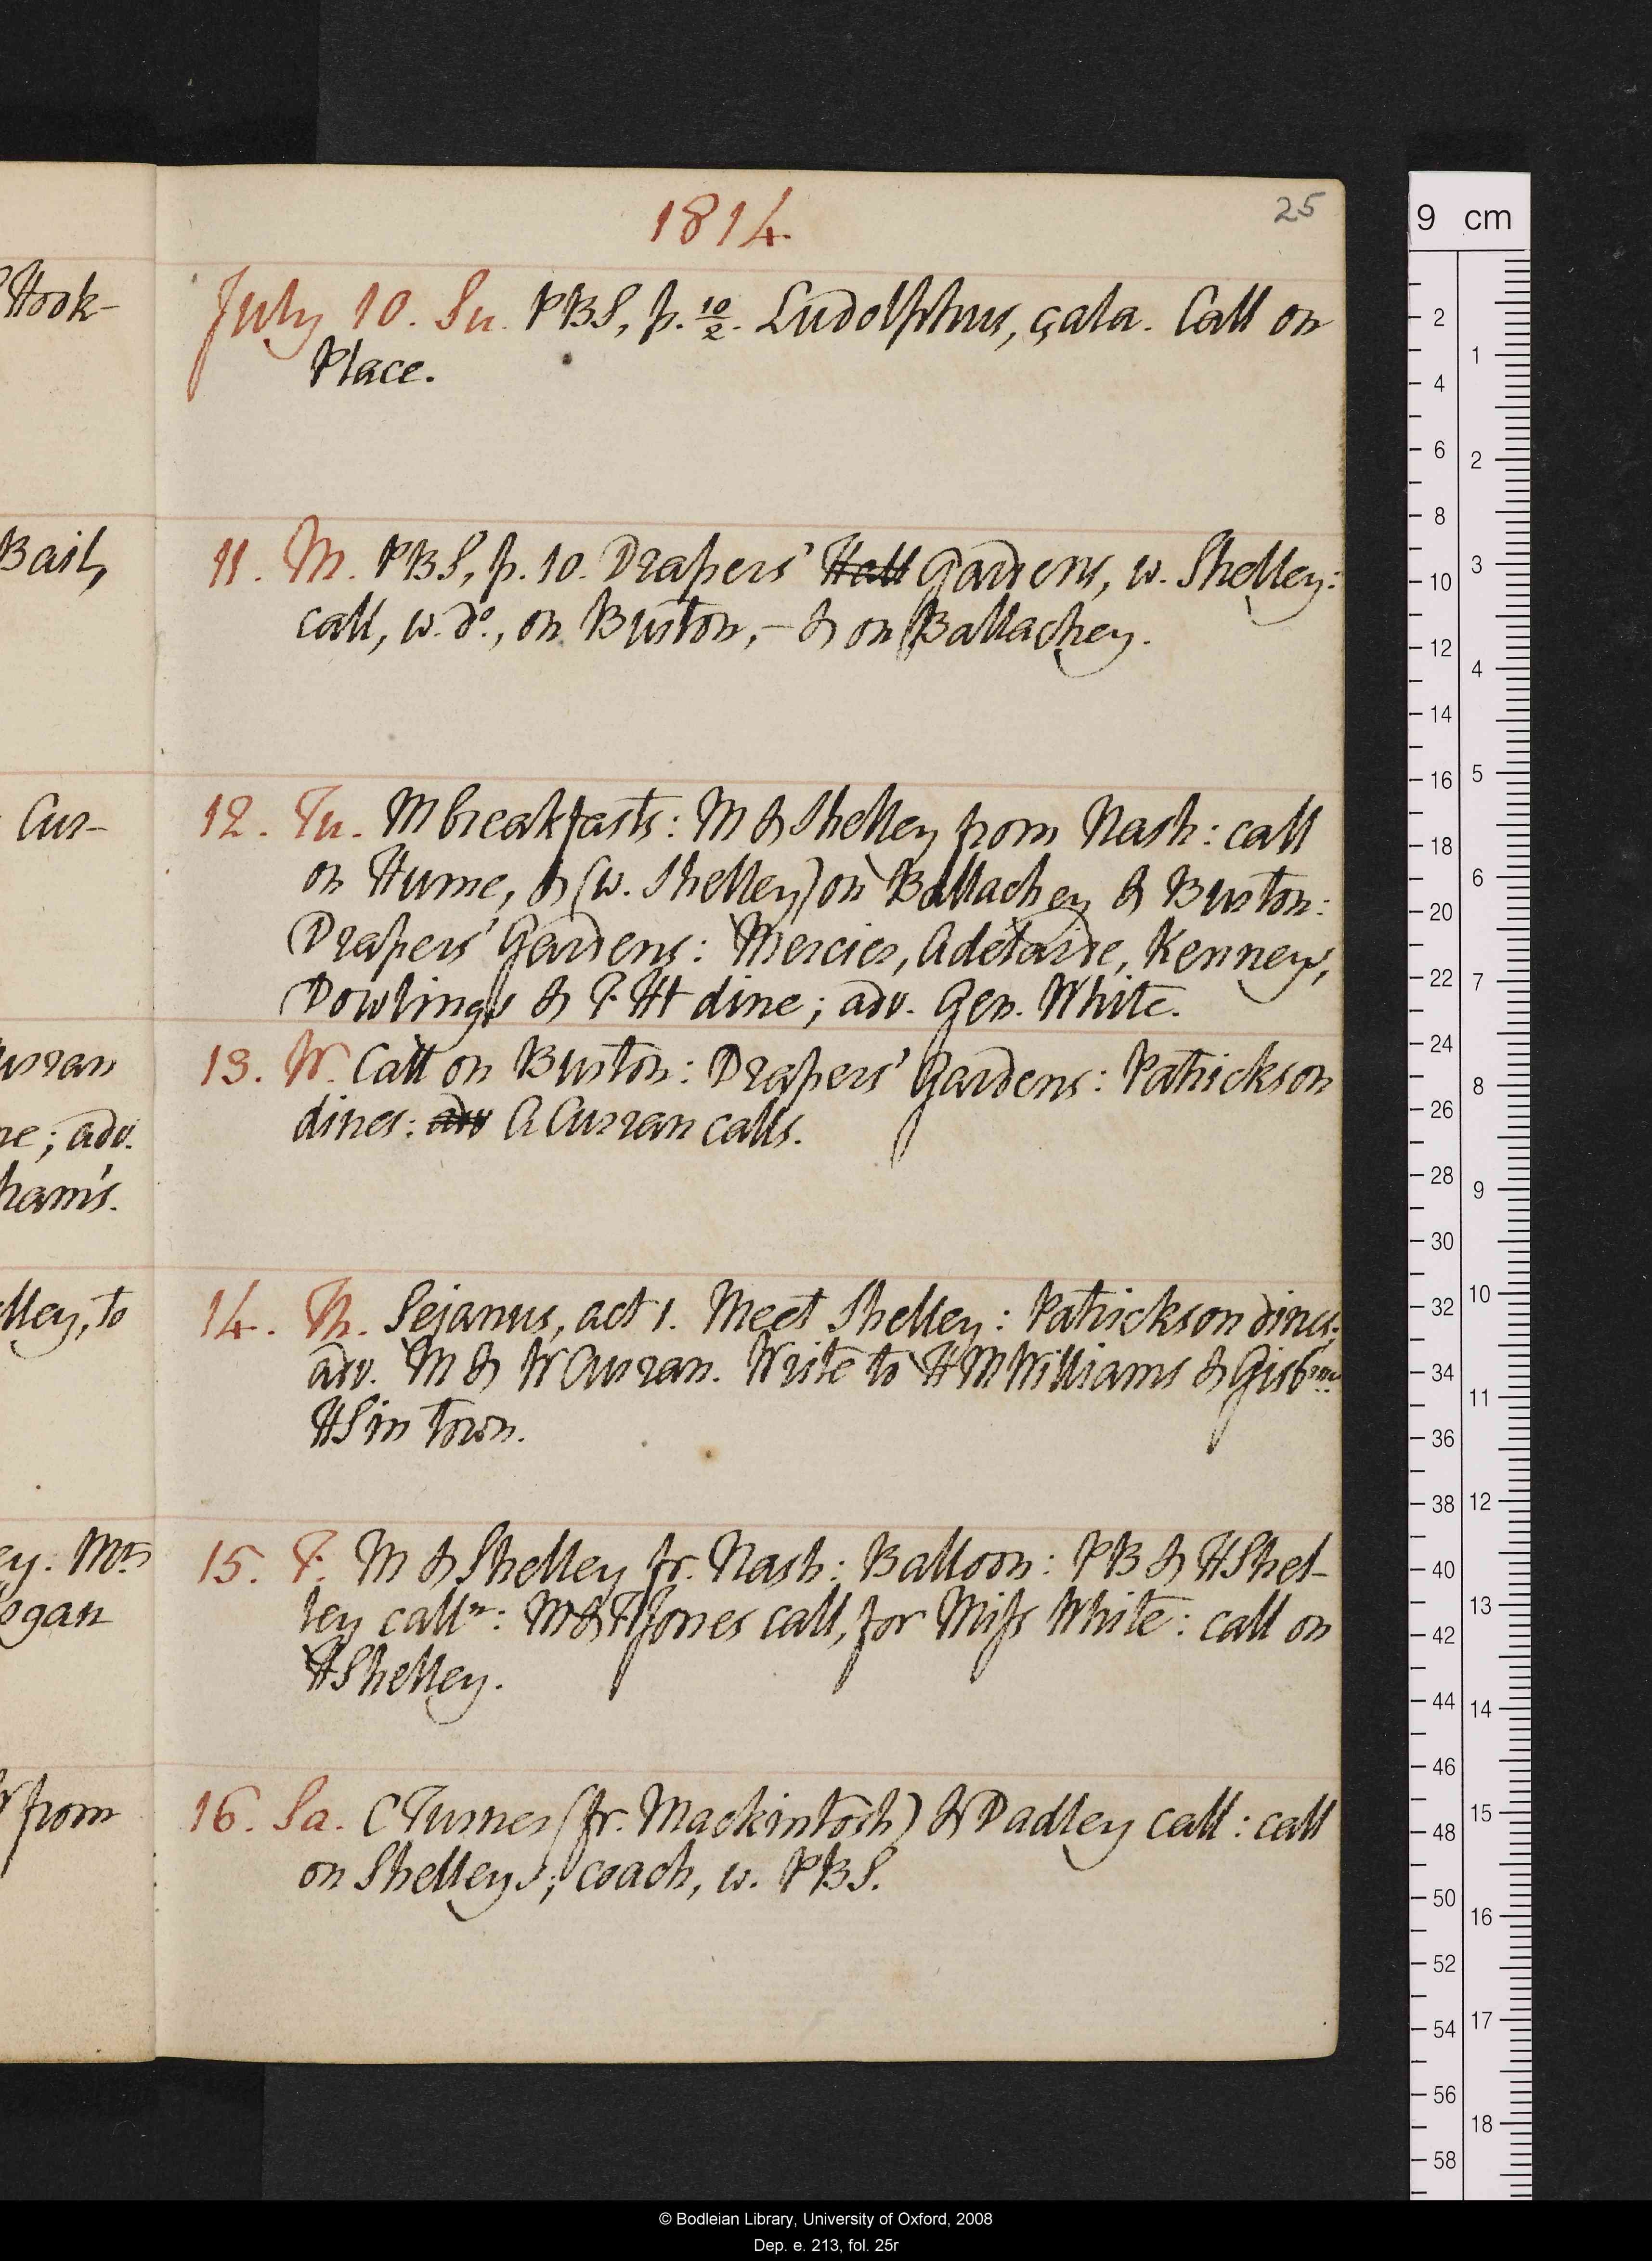 1814.
25
Hook-
July 10. Su. PBS, p. 10/2. Ludolphus, çala. Call on
Place.
Bail,
11. M. PBS, p. 10. Drapers' Hall Gardens, w. Shelley:
call, w. do., on Buxton, – & on Ballachey.
Cur-
12. Tu. M breakfasts: M & Shelley from Nash: call
on Hume, & (w. Shelley) on Ballachey & Buxton:
Drapers' Gardens: Mercier, Adelaide, Kenneys,
Dowlings & T. Ht dine; adv. Gen. White.
13. W. Call on Buxton: Drapers' Gardens: Patrickson
dines: adv A Curran calls.
urran
ne; adv.
ham's.
14. Th. Sejanus, act 1. Meet Shelley: Patrickson dines;
adv. M & W Curran. Write to H M Williams & Gisbne
HS in town.
lley, to
15. F. M & Shelley fr. Nash: Balloon: PB & H Shel-
ley calln: M & F Jones call, for Miss White: call on
H Shelley.
ey. Mrs
ogan
16. Sa. C Turner (fr. Mackintosh) & Dadley call: call
on Shelleys; coach, w. PBS.
from
9 cm
2 4 6 8 10 12 14 16 18 20 22 24 26 28 30 32 34 36 38 40 42 44 46 48 50 52 54 56 58
1 2 3 4 5 6 7 8 9 10 11 12 13 14 15 16 17 18
© Bodleian Library, University of Oxford, 2008
Dep. e. 213, fol. 25r